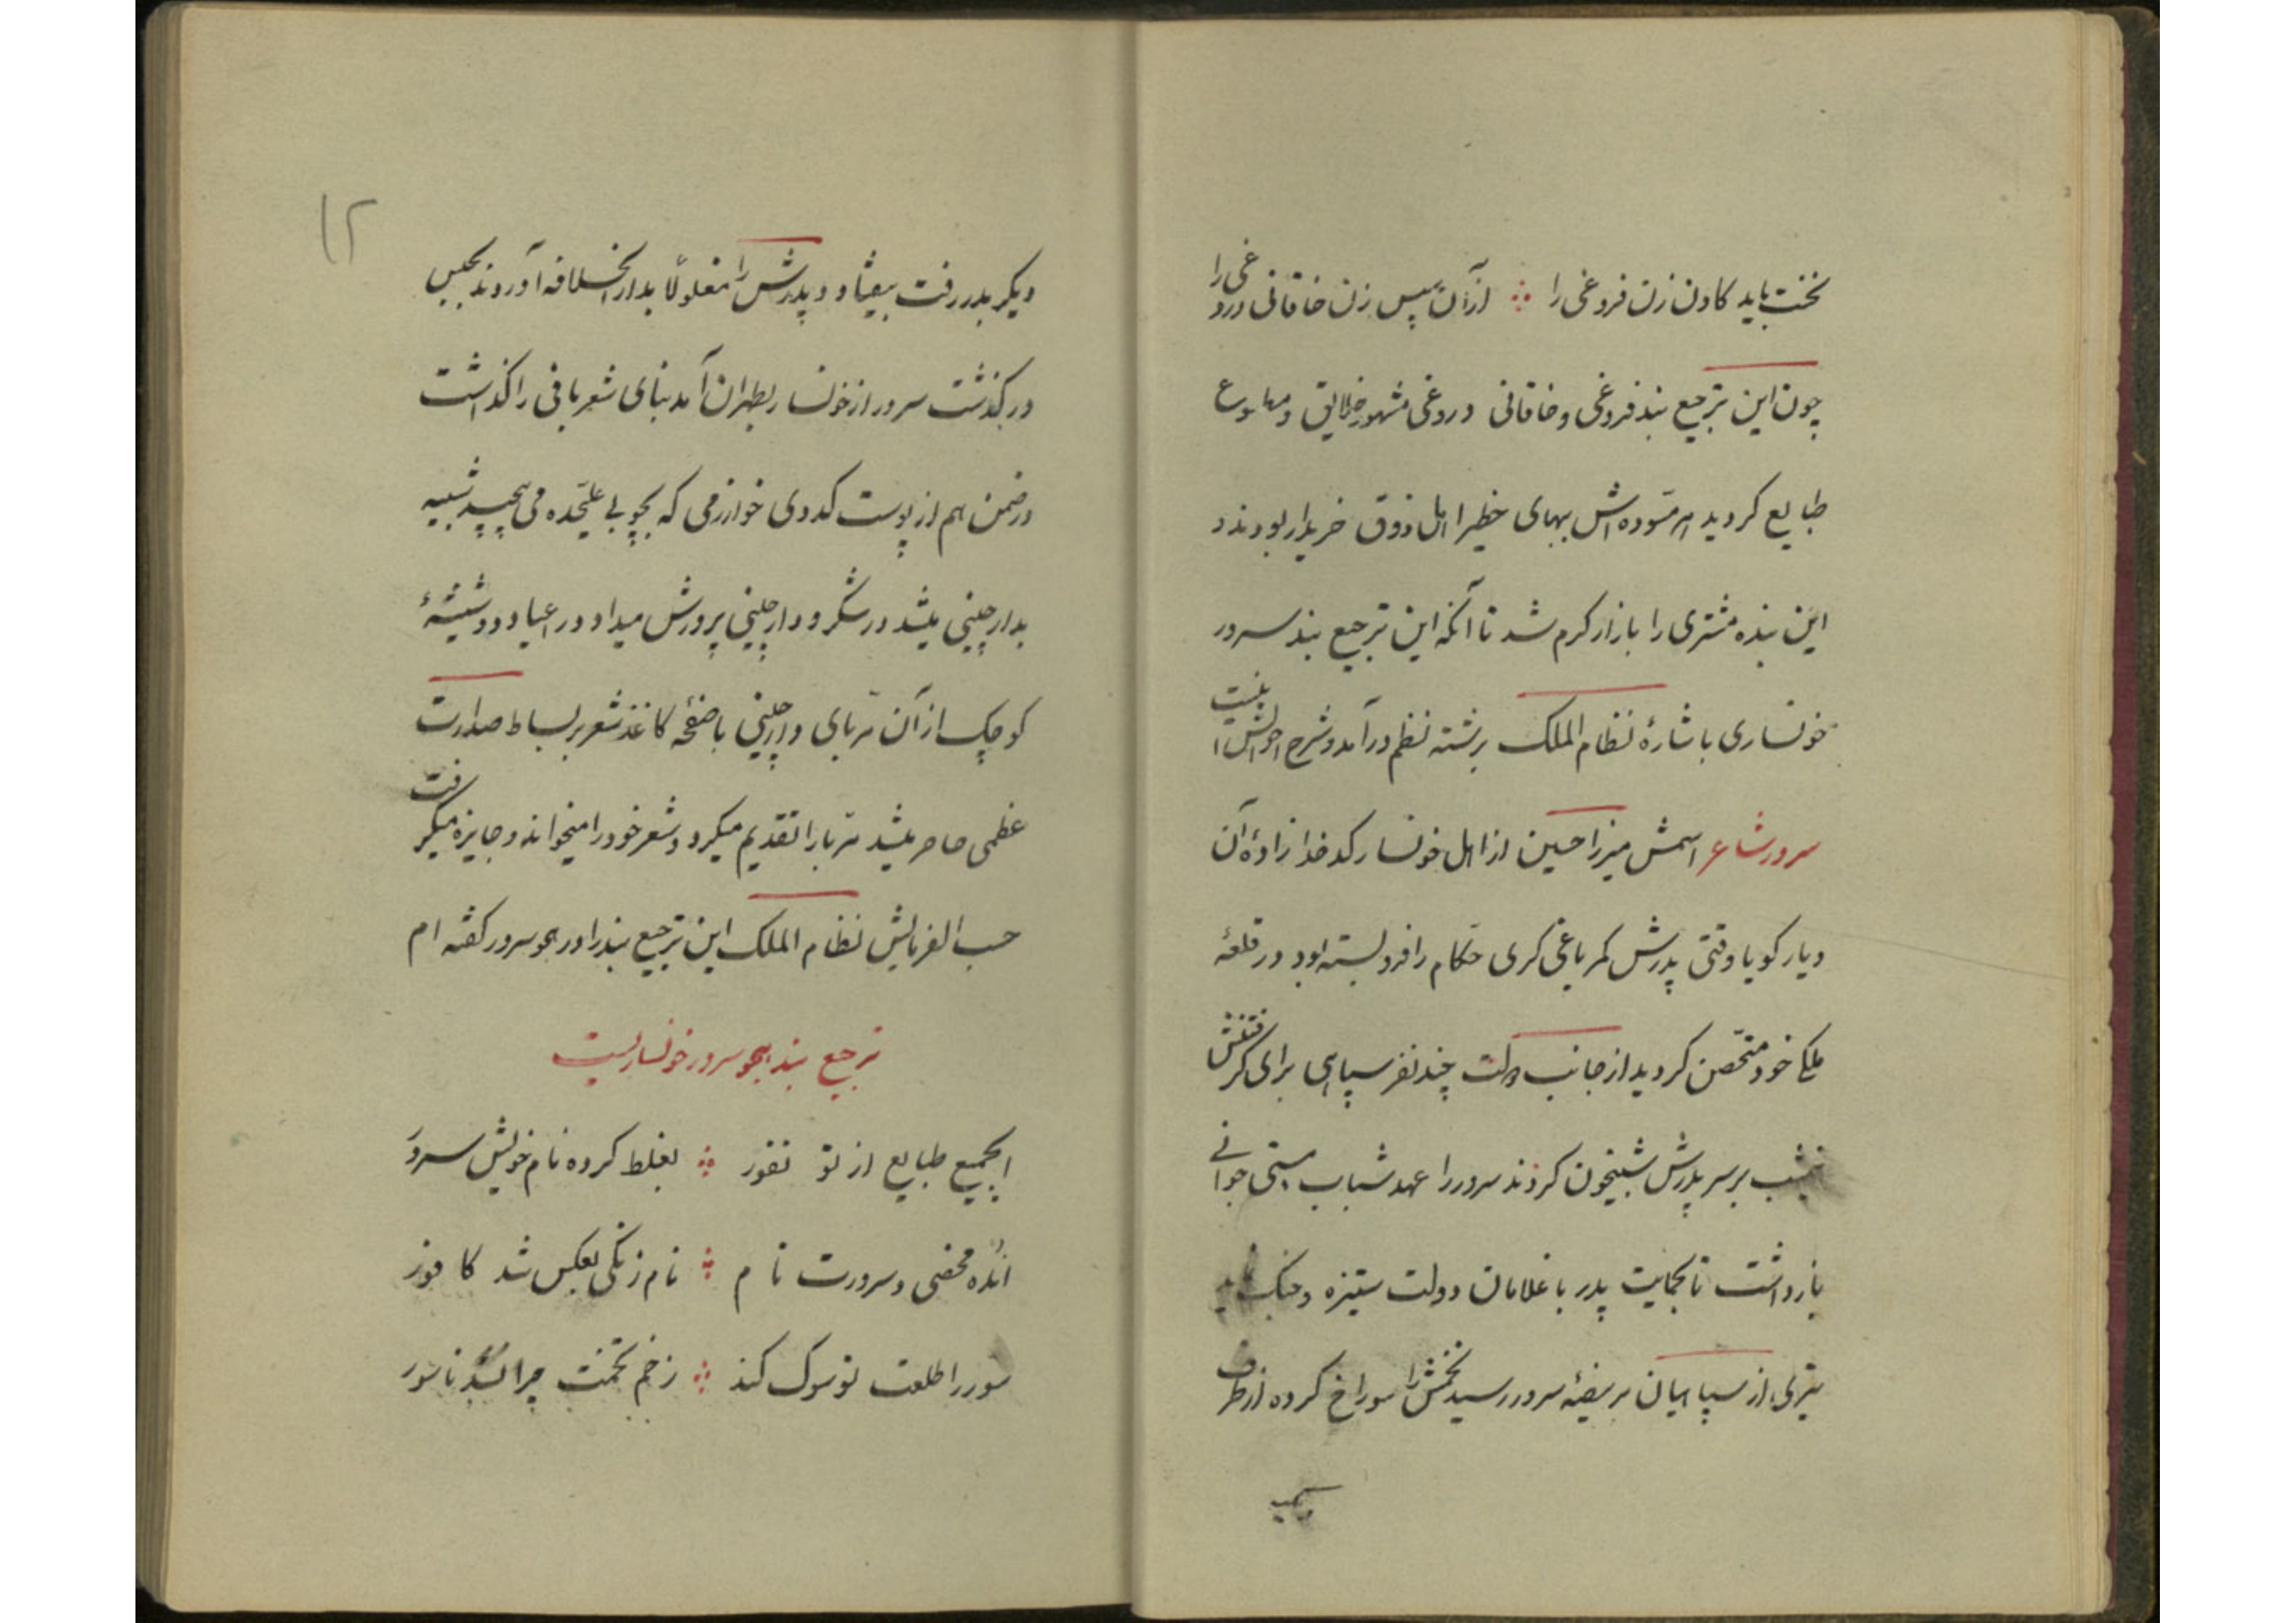 نخست باید کاون زن فروغی را ∴ از آن سپس زن خاقانی دروغی را
چون این ترجیع بند فروغی و خاقانی دروغی مشهور خلایق و مطبوع
طبایع کردید هر مسوده اش ببهای خطیر اهل ذوق خریدار بودند و
این بنده مشتری را بازار کرم شد تا آنکه این ترجیع بند سرور
خونساری باشارهٔ نظام الملک برشته نظم درآمد و شرح احوالش اینست
سرور شاعر اسمش میرزا حسین از اهل خونسار کدخدا زادهٔ آن
دیار کویا وقتی پدرش کمر یاغی کری حکام را فرو بسته بود در قلعهٔ
ملکی خود متحصن کردید از جانب دولت چند نفر سپاهی برای کرفتنش
نیمشب بر سر پدرش شبیخون کردند سرور را عهد شباب مستی جوانی
بازداشت تا بحمایت پدر با غلامان دولت ستیزه و جنک
تیری از سپاهیان بر بیضهٔ سرور رسید تخمش را سوراخ کرده از طرف
دیکر بدر رفت بیفتاد و پدرش را مغلولاً بدار الخلافه آوردند بحبس
درکذشت سرور از خونسار بطهران آمد بنای شعر بافی را کذاشت
در ضمن هم از پوست کدوی خوارزمی که بچوبی علیحده می پیچید شبیه
بدارچینی میشد در شکر و دارچینی پرورش میداد در اعیاد دو شیشهٔ
کوچک از آن مربای دارچینی با صفحهٔ کاغذ شعر بر بساط صدارت
عظمی حاضر میشد مربا را تقدیم میکرد و شعر خود را میخواند و جایزه میکرفت
حسب الفرمایش نظام الملک این ترجیع بند را در هجو سرور کفته ام
ترجیع بند بهجو سرور خونساریست
ایجمیع طبایع از تو نفور ∴ بغلط کرده نام خویش سرور
انده محضی و سرورت نام ∴ نام زنکی بعکس شد کافور
سور را طلعت تو سوک کند ∴ زخم تخمت چرا نشد ناسور